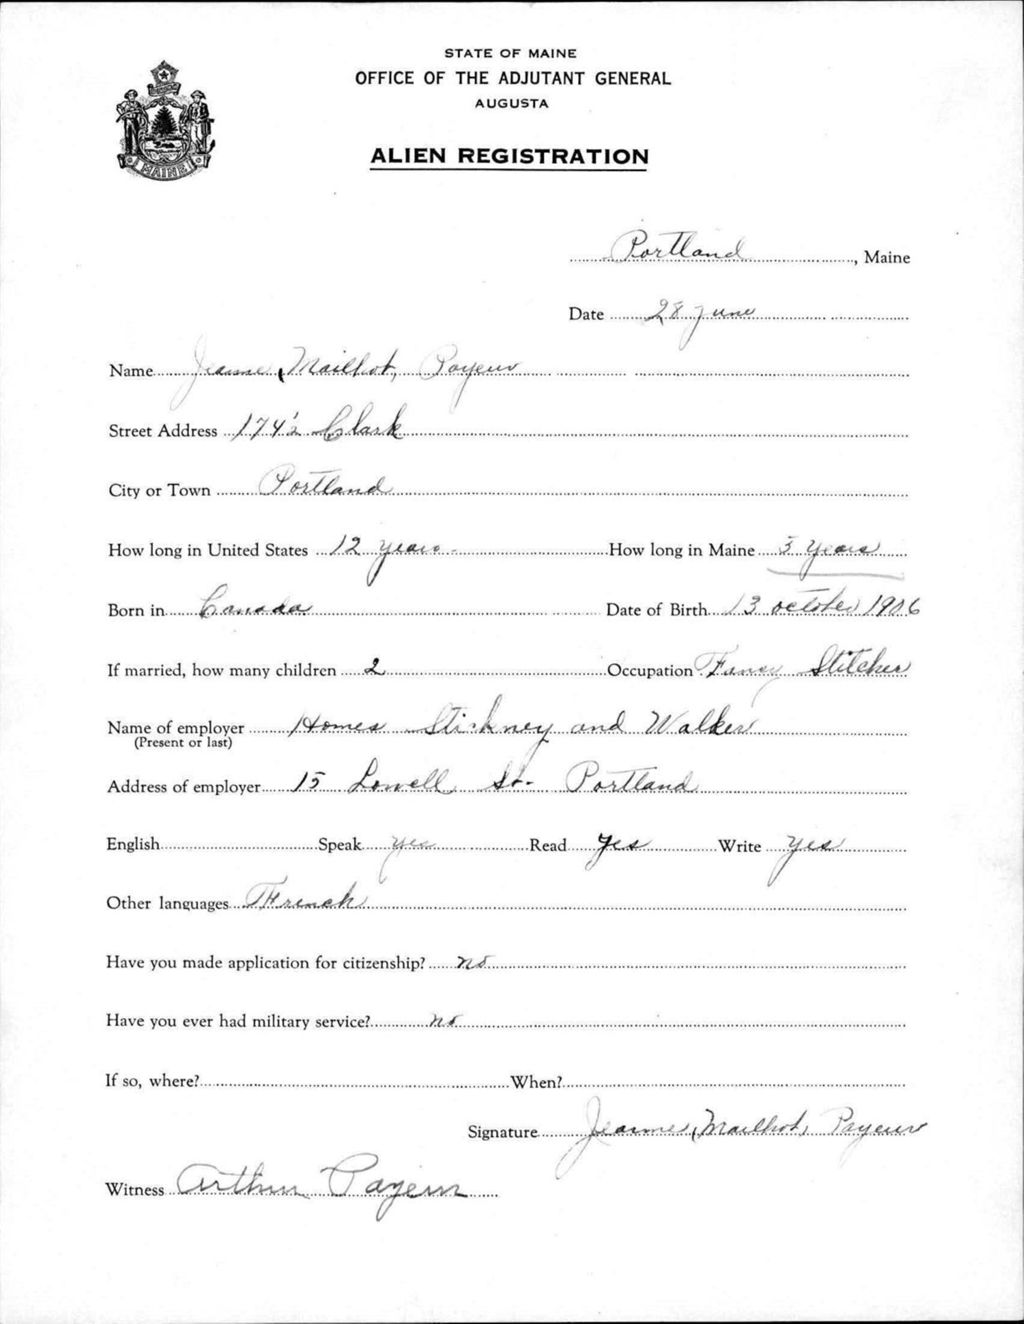 STATE OF MAINE
OFFICE OF THE ADJUTANT GENERAL
AUGUSTA
ALIEN REGISTRATION
MAINE
Portland, Maine
Date 28 June
Name Jeanne, Mailhot, Payeur
Street Address 174½ Clark
City or Town Portland
How long in United States 12 years - How long in Maine 3 years
Born in Canada Date of Birth 13 october 1906
If married, how many children 2 Occupation Fancy Stitcher
Name of employer Homes Stickney and Walker
(Present or last)
Address of employer 15 Lowell St- Portland
English Speak yes Read yes Write yes
Other languages French
Have you made application for citizenship? no
Have you ever had military service? no
If so, where? When?
Signature Jeanne, Mailhot, Payeur
Witness Arthur Payeur